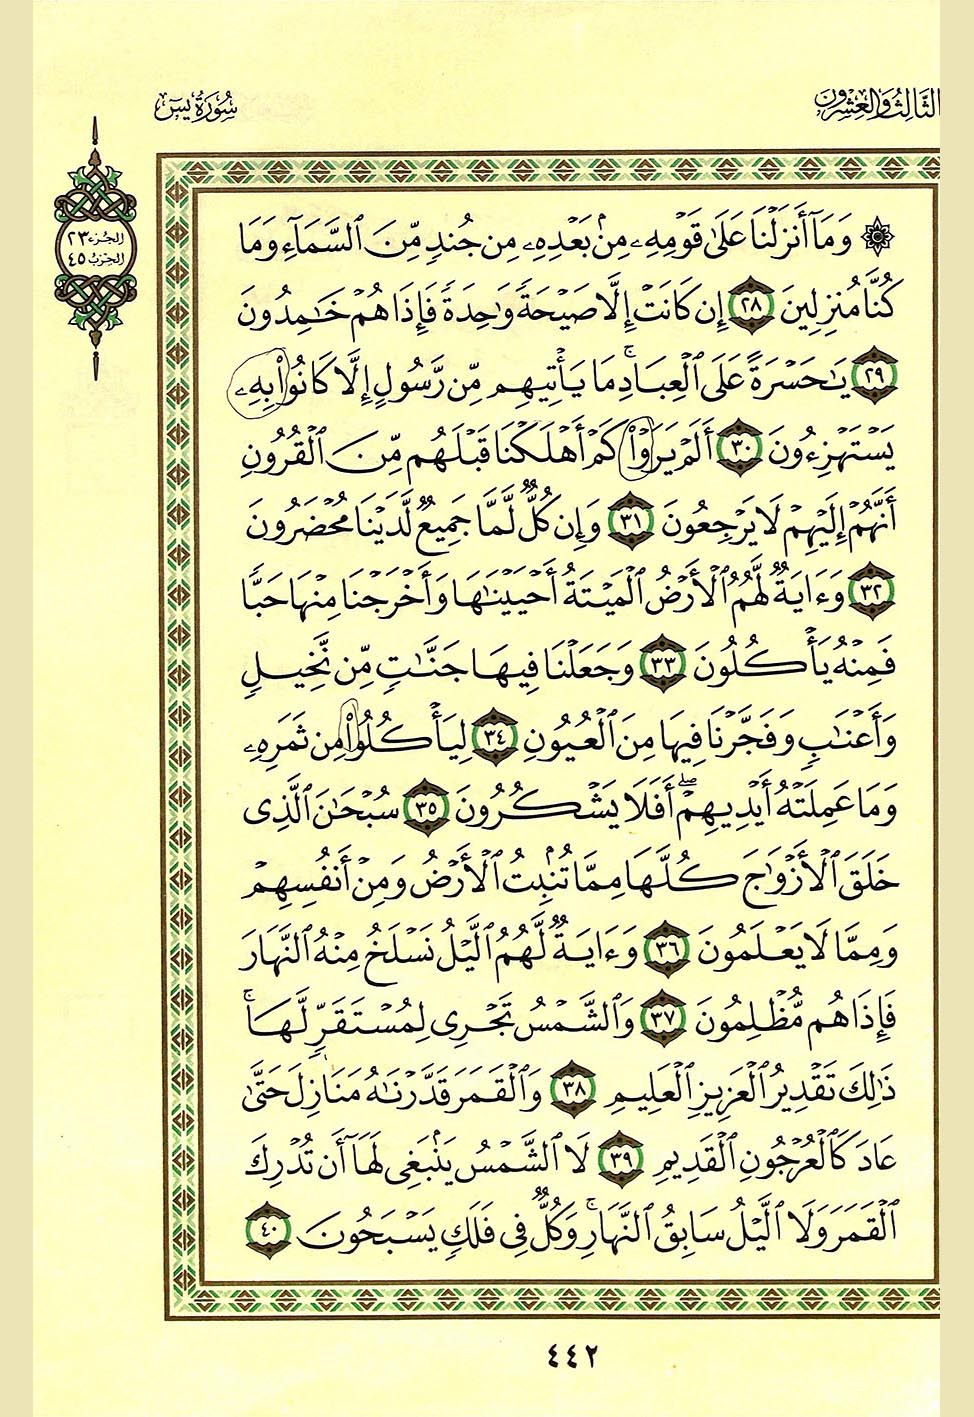 الثَّالِثُ وَالعِشْرُونَ
سُورَةُ يسٓ
الجُزْء ٢٣
الحِزْب ٤٥
۞ وَمَآ أَنزَلْنَا عَلَىٰ قَوْمِهِۦ مِنۢ بَعْدِهِۦ مِن جُندٍ مِّنَ ٱلسَّمَآءِ وَمَا
كُنَّا مُنزِلِينَ ٢٨ إِن كَانَتْ إِلَّا صَيْحَةً وَٰحِدَةً فَإِذَا هُمْ خَٰمِدُونَ
٢٩ يَٰحَسْرَةً عَلَى ٱلْعِبَادِ ۚ مَا يَأْتِيهِم مِّن رَّسُولٍ إِلَّا كَانُوا۟ بِهِۦ
يَسْتَهْزِءُونَ ٣٠ أَلَمْ يَرَوْا۟ كَمْ أَهْلَكْنَا قَبْلَهُم مِّنَ ٱلْقُرُونِ
أَنَّهُمْ إِلَيْهِمْ لَا يَرْجِعُونَ ٣١ وَإِن كُلٌّ لَّمَّا جَمِيعٌ لَّدَيْنَا مُحْضَرُونَ
٣٢ وَءَايَةٌ لَّهُمُ ٱلْأَرْضُ ٱلْمَيْتَةُ أَحْيَيْنَٰهَا وَأَخْرَجْنَا مِنْهَا حَبًّا
فَمِنْهُ يَأْكُلُونَ ٣٣ وَجَعَلْنَا فِيهَا جَنَّٰتٍ مِّن نَّخِيلٍ
وَأَعْنَٰبٍ وَفَجَّرْنَا فِيهَا مِنَ ٱلْعُيُونِ ٣٤ لِيَأْكُلُوا۟ مِن ثَمَرِهِۦ
وَمَا عَمِلَتْهُ أَيْدِيهِمْ ۖ أَفَلَا يَشْكُرُونَ ٣٥ سُبْحَٰنَ ٱلَّذِى
خَلَقَ ٱلْأَزْوَٰجَ كُلَّهَا مِمَّا تُنۢبِتُ ٱلْأَرْضُ وَمِنْ أَنفُسِهِمْ
وَمِمَّا لَا يَعْلَمُونَ ٣٦ وَءَايَةٌ لَّهُمُ ٱلَّيْلُ نَسْلَخُ مِنْهُ ٱلنَّهَارَ
فَإِذَا هُم مُّظْلِمُونَ ٣٧ وَٱلشَّمْسُ تَجْرِى لِمُسْتَقَرٍّ لَّهَا ۚ
ذَٰلِكَ تَقْدِيرُ ٱلْعَزِيزِ ٱلْعَلِيمِ ٣٨ وَٱلْقَمَرَ قَدَّرْنَٰهُ مَنَازِلَ حَتَّىٰ
عَادَ كَٱلْعُرْجُونِ ٱلْقَدِيمِ ٣٩ لَا ٱلشَّمْسُ يَنۢبَغِى لَهَآ أَن تُدْرِكَ
ٱلْقَمَرَ وَلَا ٱلَّيْلُ سَابِقُ ٱلنَّهَارِ ۚ وَكُلٌّ فِى فَلَكٍ يَسْبَحُونَ ٤٠
٤٤٢